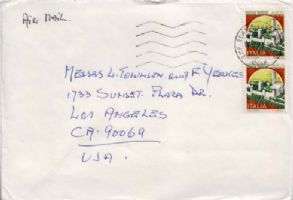 Air Mail
ITALIA
Messrs L. Townsen and F.
1733 Sunset Plaza Dr.
Los Angeles
ITALIA
CA. 90069
USA.